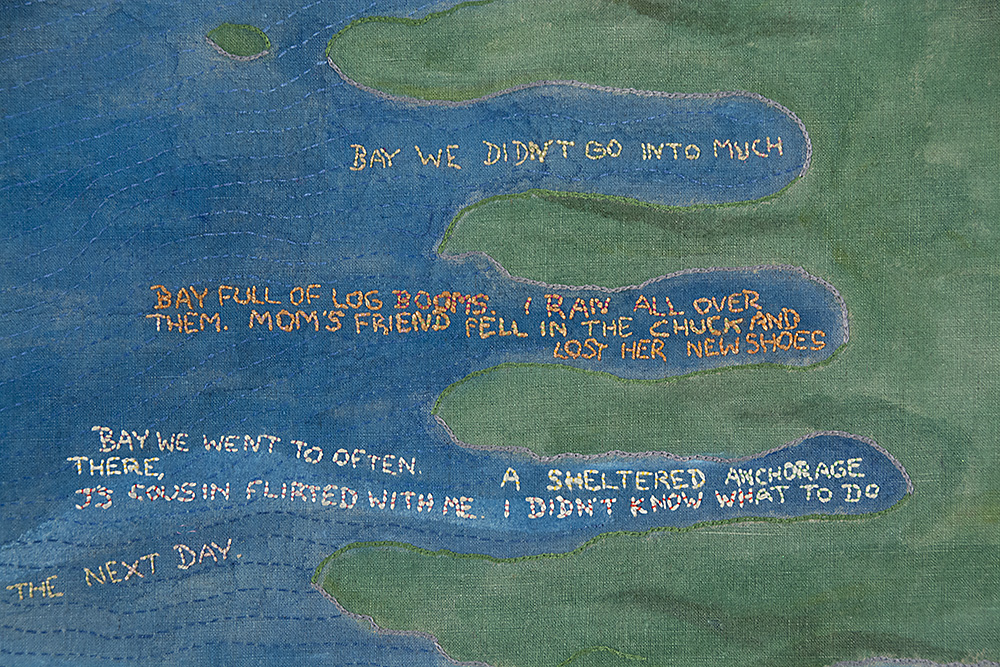 BAY WE DIDN'T GO INTO MUCH
BAY FULL OF LOG BOOMS. I RAN ALL OVER
THEM. MOM'S FRIEND FELL IN THE CHUCK AND
LOST HER NEW SHOES
BAY WE WENT TO OFTEN. A SHELTERED ANCHORAGE
THERE,
J'S COUSIN FLIRTED WITH ME. I DIDN'T KNOW WHAT TO DO
THE NEXT DAY.